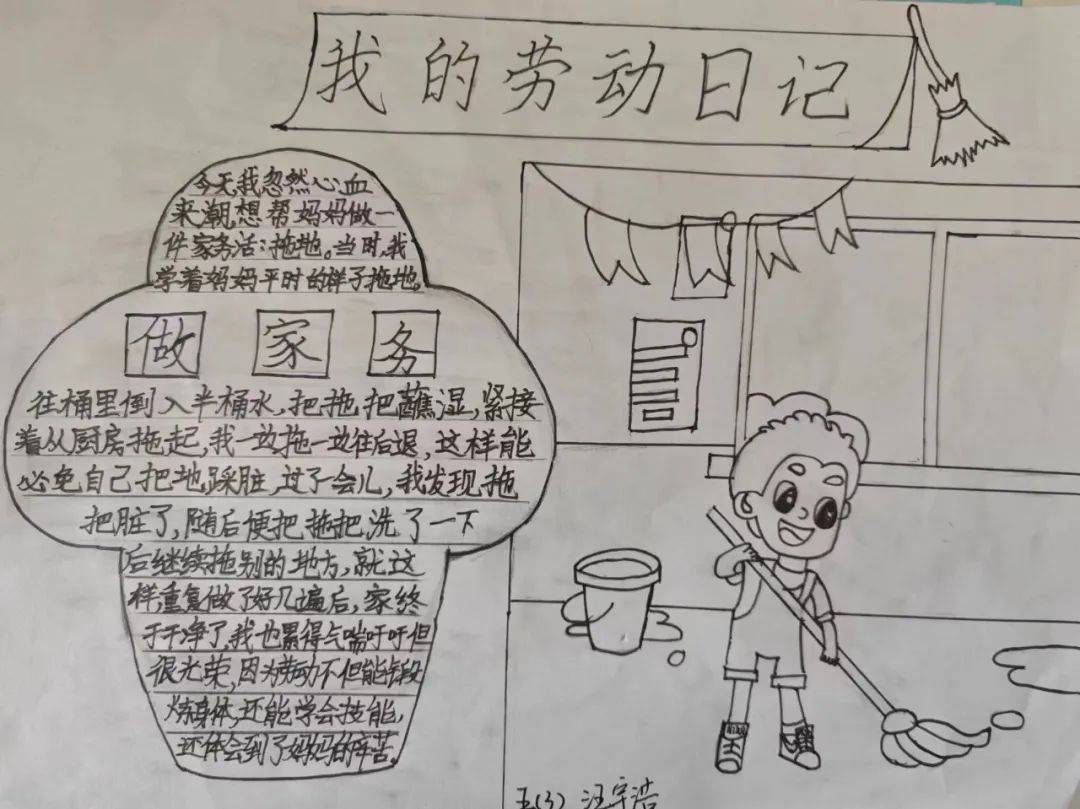 我的劳动日记
今天,我忽然心血
来潮,想帮妈妈做一
件家务活:拖地。当时,我
学着妈妈平时的样子拖地,
做家务
往桶里倒入半桶水,把拖把蘸湿,紧接
着从厨房拖起,我一边拖一边往后退,这样能
必免自己把地踩脏,过了一会儿,我发现拖
把脏了,随后便把拖把洗了一下
后继续拖别的地方,就这
样,重复做了好几遍后,家终
于干净了,我也累得气喘吁吁但
很光荣,因为劳动不但能锻
炼身体,还能学会技能,
还体会到了妈妈的辛苦。
五(3) 汪宇浩